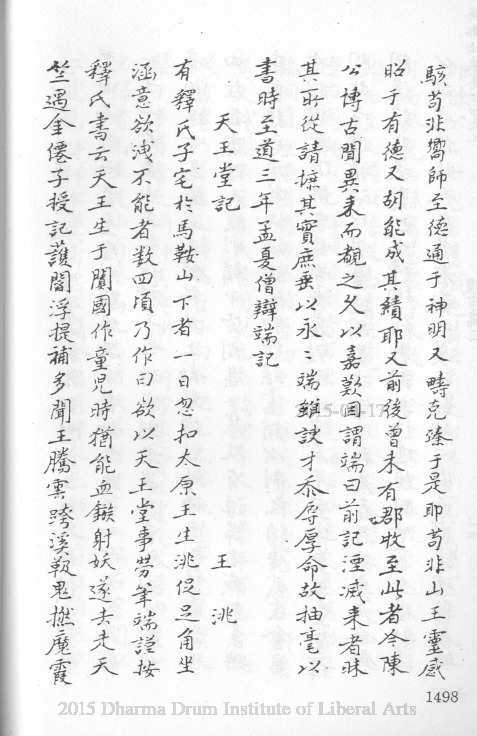 駭苟非嚮師至德通于神明又疇克臻于是耶苟非山王靈感
昭于有德又胡能成其績耶又前後曾未有郡牧至此者今陳
公博古聞異来而覩之久以嘉歎因謂端曰前記湮滅来者昧
其所從請摭其實庶垂以永〻端雖謏才忝辱厚命故抽毫以
書時至道三年孟夏僧辯端記
天王堂記
王洮
有釋氏子宅於馬鞍山下者一日忽扣太原王生洮促足角坐
涵意欲洩不能者数四頃乃作曰欲以天王堂事勞筆端謹按
釋氏書云天王生于闐國作童児時猶能血鏃射妖遂去走天
竺遇金僊子授記護閻浮提補多聞王騰雲跨溪靸鬼撚魔霞
1498
2015 Dharma Drum Institute of Liberal Arts